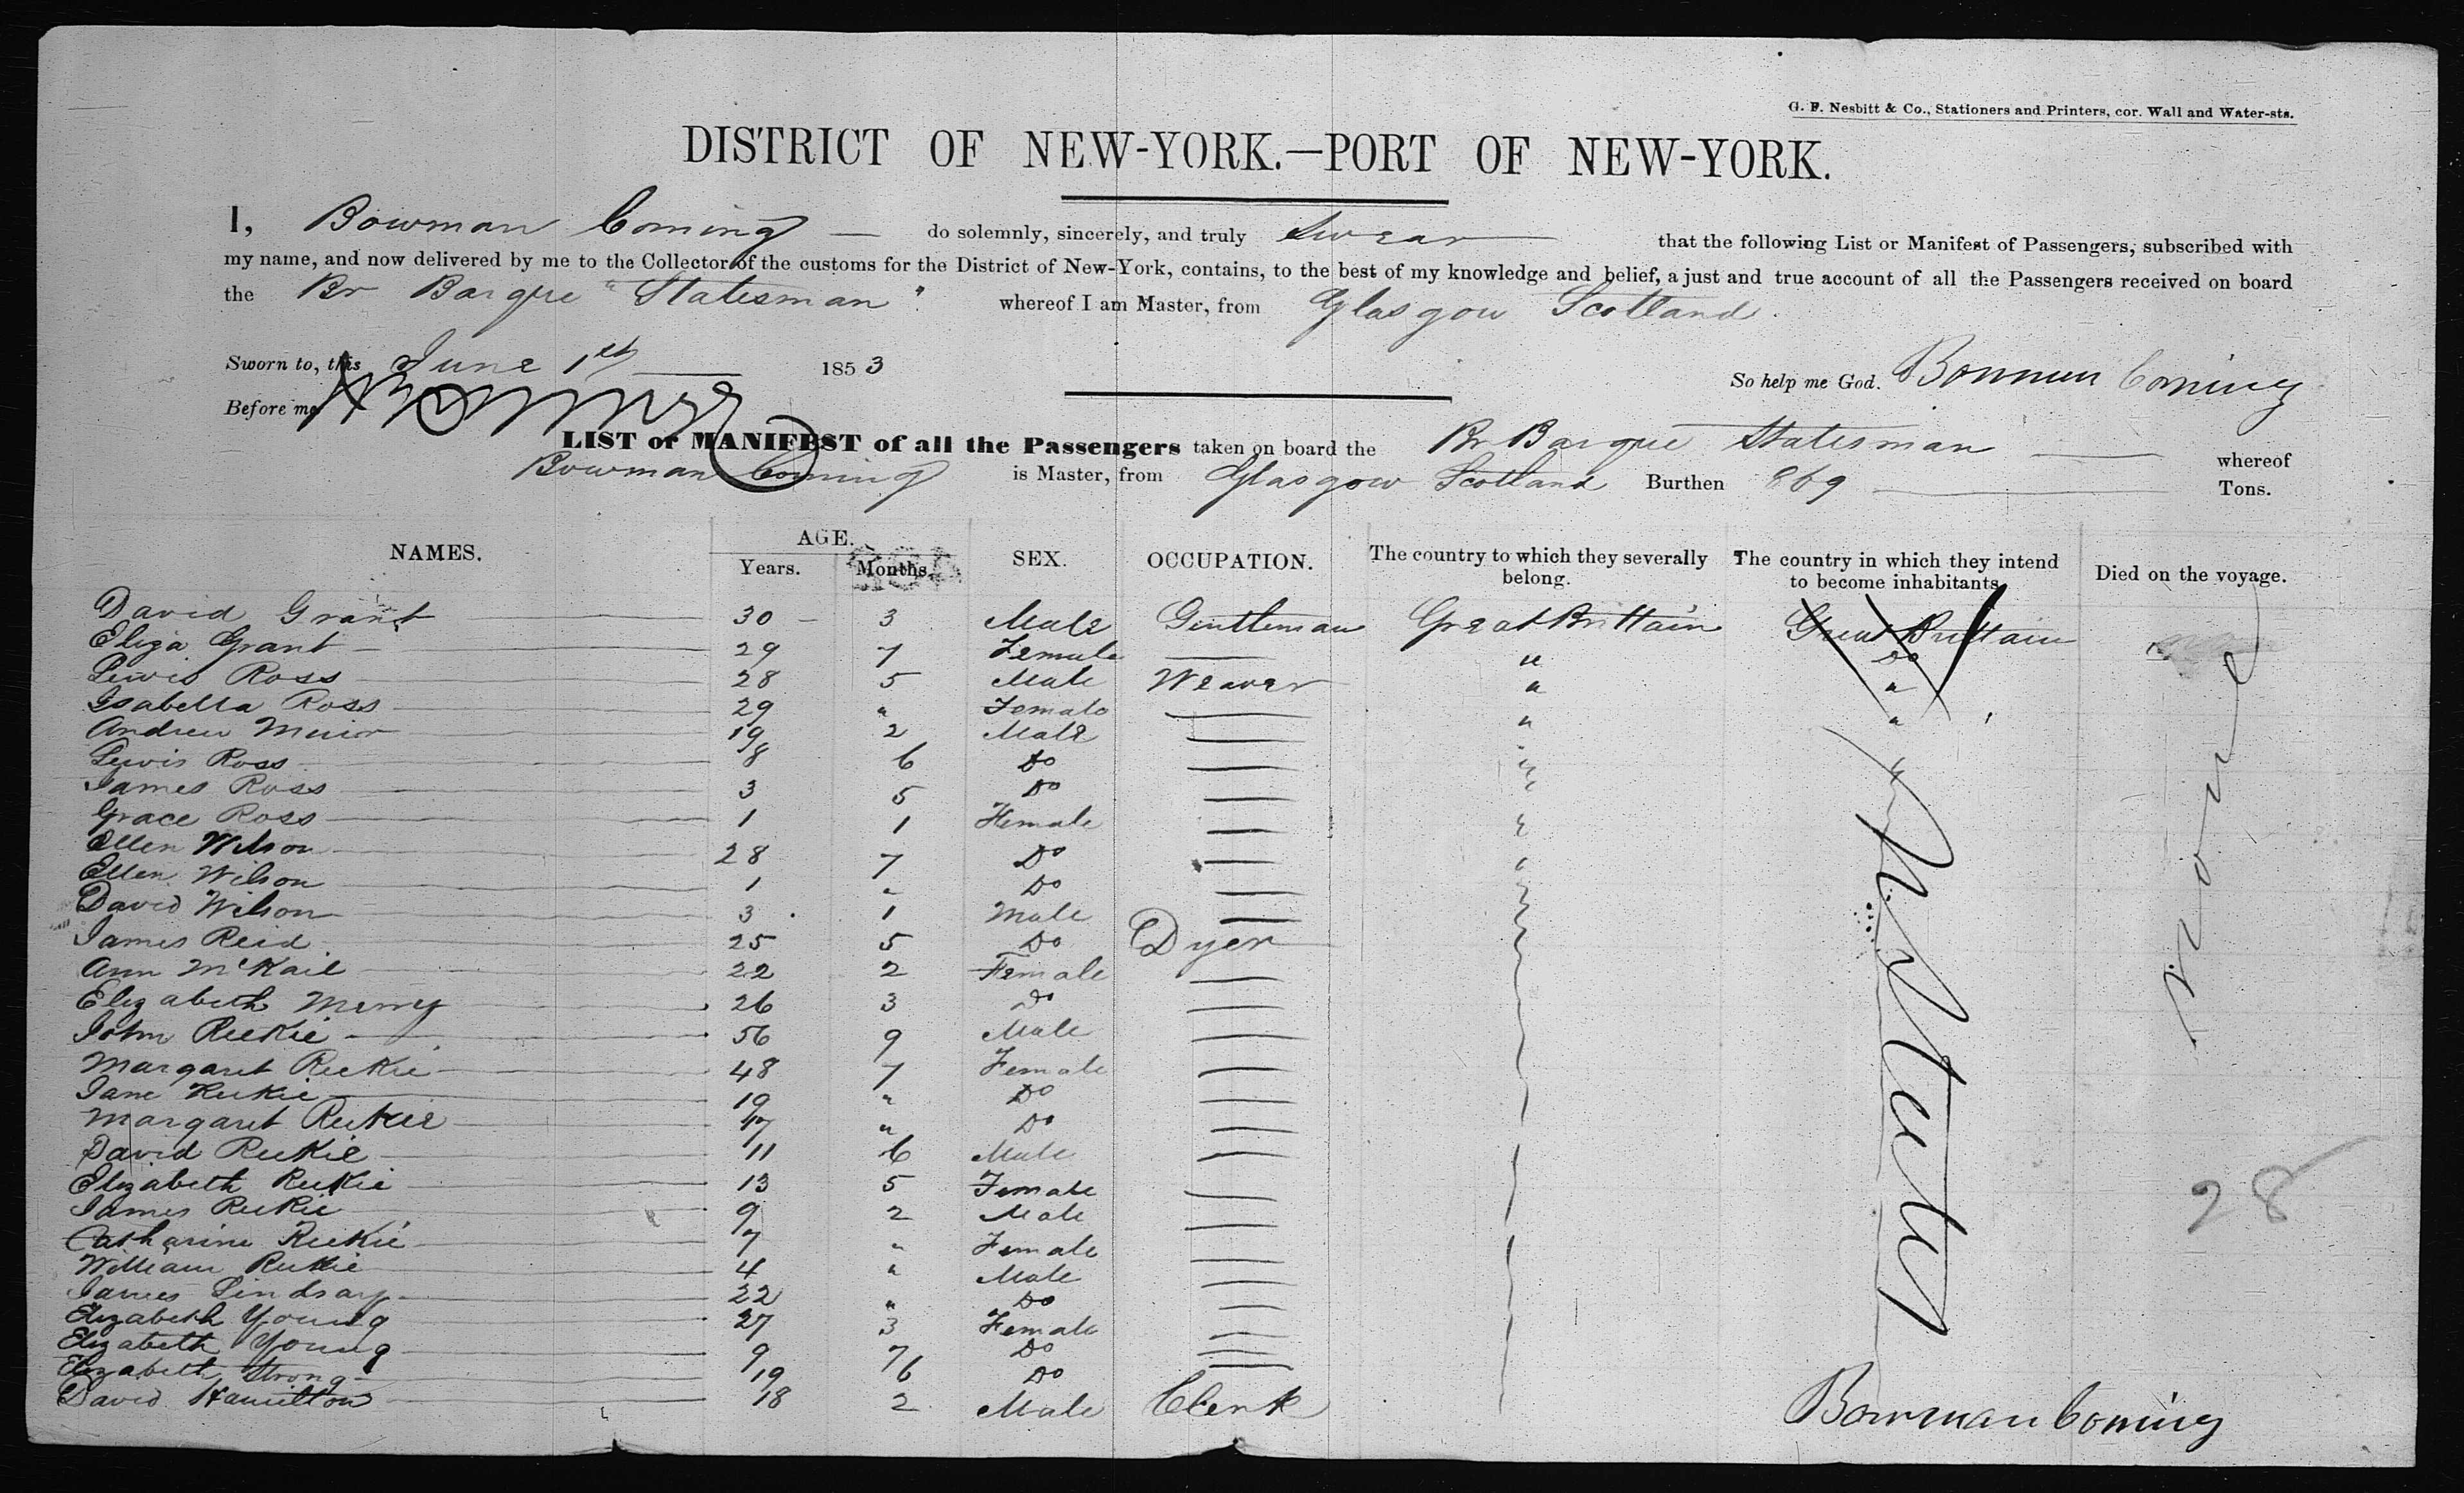 G. F. Nesbitt & Co., Stationers and Printers, cor. Wall and Water-sts.
DISTRICT OF NEW-YORK.—PORT OF NEW-YORK.
I, Bowman Coming — do solemnly, sincerely, and truly Swear that the following List or Manifest of Passengers, subscribed with
my name, and now delivered by me to the Collector of the customs for the District of New-York, contains, to the best of my knowledge and belief, a just and true account of all the Passengers received on board
the Br Barque "Statesman" whereof I am Master, from Glasgow Scotland.
Sworn to, this June 1st 1853
So help me God. Bowman Coming
Before me
LIST or MANIFEST of all the Passengers taken on board the Br Barque Statesman whereof
Bowman Coming is Master, from Glasgow Scotland Burthen 869 Tons.
NAMES. AGE. Years. Months. SEX. OCCUPATION. The country to which they severally belong. The country in which they intend to become inhabitants. Died on the voyage.
David Grant 30 – 3 Male Gentleman Great Brittain Great Brittain
Eliza Grant 29 7 Female — " Do
Lewis Ross 28 5 Male Weaver " "
Isabella Ross 29 " Female — " "
Andrew Muior 19 2 Male — " "
Lewis Ross 8 6 Do — "
James Ross 3 5 Do — "
Grace Ross 1 1 Female — "
Ellen Wilson 28 7 Do — "
Ellen Wilson 1 " Do —
David Wilson 3 1 Male —
James Reid 25 5 Do Dyer
Ann McKail 22 2 Female —
Elizabeth Merry 26 3 Do —
John Reekie 56 9 Male —
Margaret Reekie 48 7 Female —
Jane Reekie 19 " Do —
Margaret Reekie 17 " Do —
David Reekie 11 6 Male —
Elizabeth Reekie 13 5 Female —
James Reekie 9 2 Male —
Catharine Reekie 7 " Female —
William Reekie 4 " Male —
James Lindsay 22 " Do —
Elizabeth Young 27 3 Female —
Elizabeth Young 9 7 Do —
Elizabeth Strong 19 6 Do —
David Hamilton 18 2 Male Clerk
U States
None
28
Bowman Coming